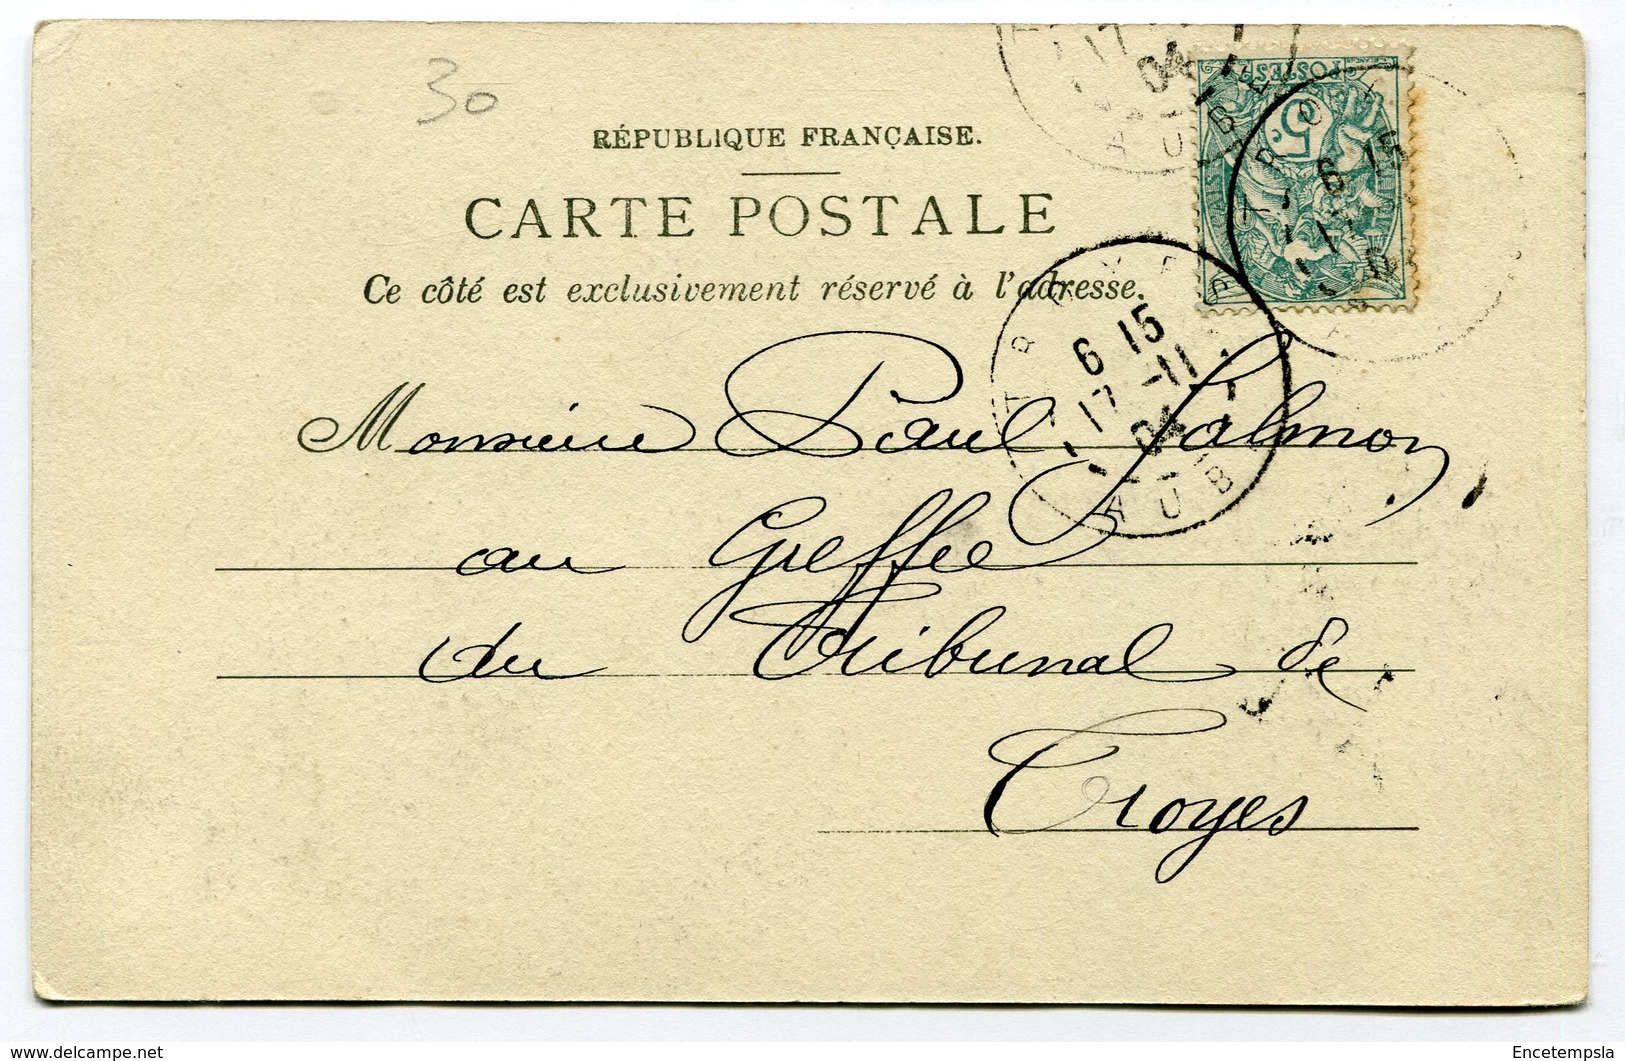 30
RÉPUBLIQUE FRANÇAISE.
CARTE POSTALE
Ce côté est exclusivement réservé à l'adresse.
POSTES
5
17
04
AUBE
TROYES
6 15
17 -11
04
AUBE
TROYES
6 15
Monsieur Paul Salmon,
au Greffe
du Tribunal de
Troyes
delcampe.net
Encetempsla